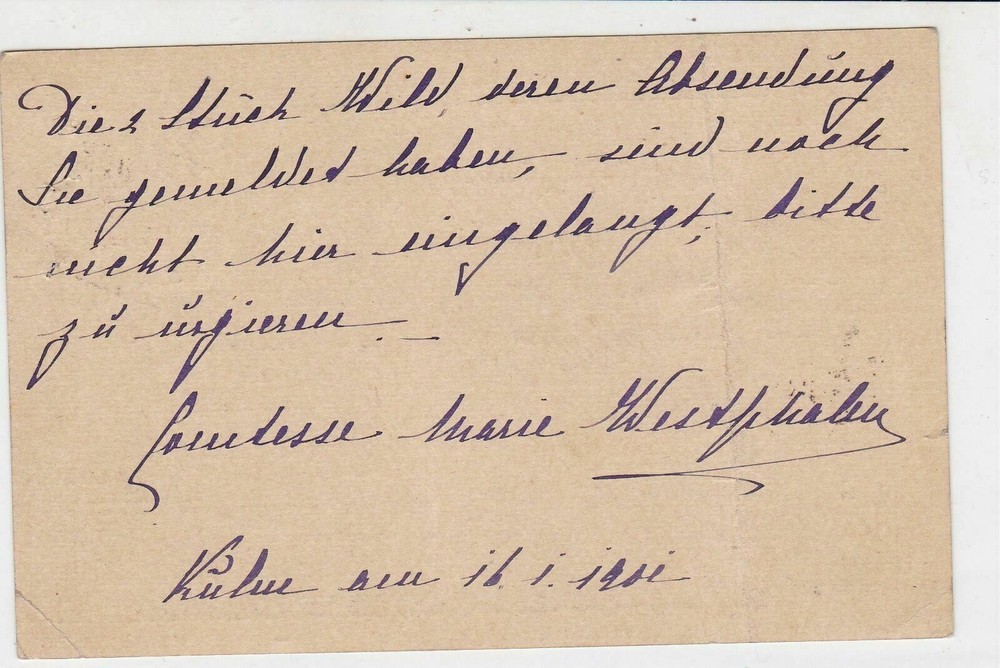 Die 2 Stück Wild, deren Absendung
Sie gemeldet haben, sind noch
nicht hier eingelangt, bitte
zu urgieren. —
Comtesse Marie Westphalen
Kulm am 16. I. 1901